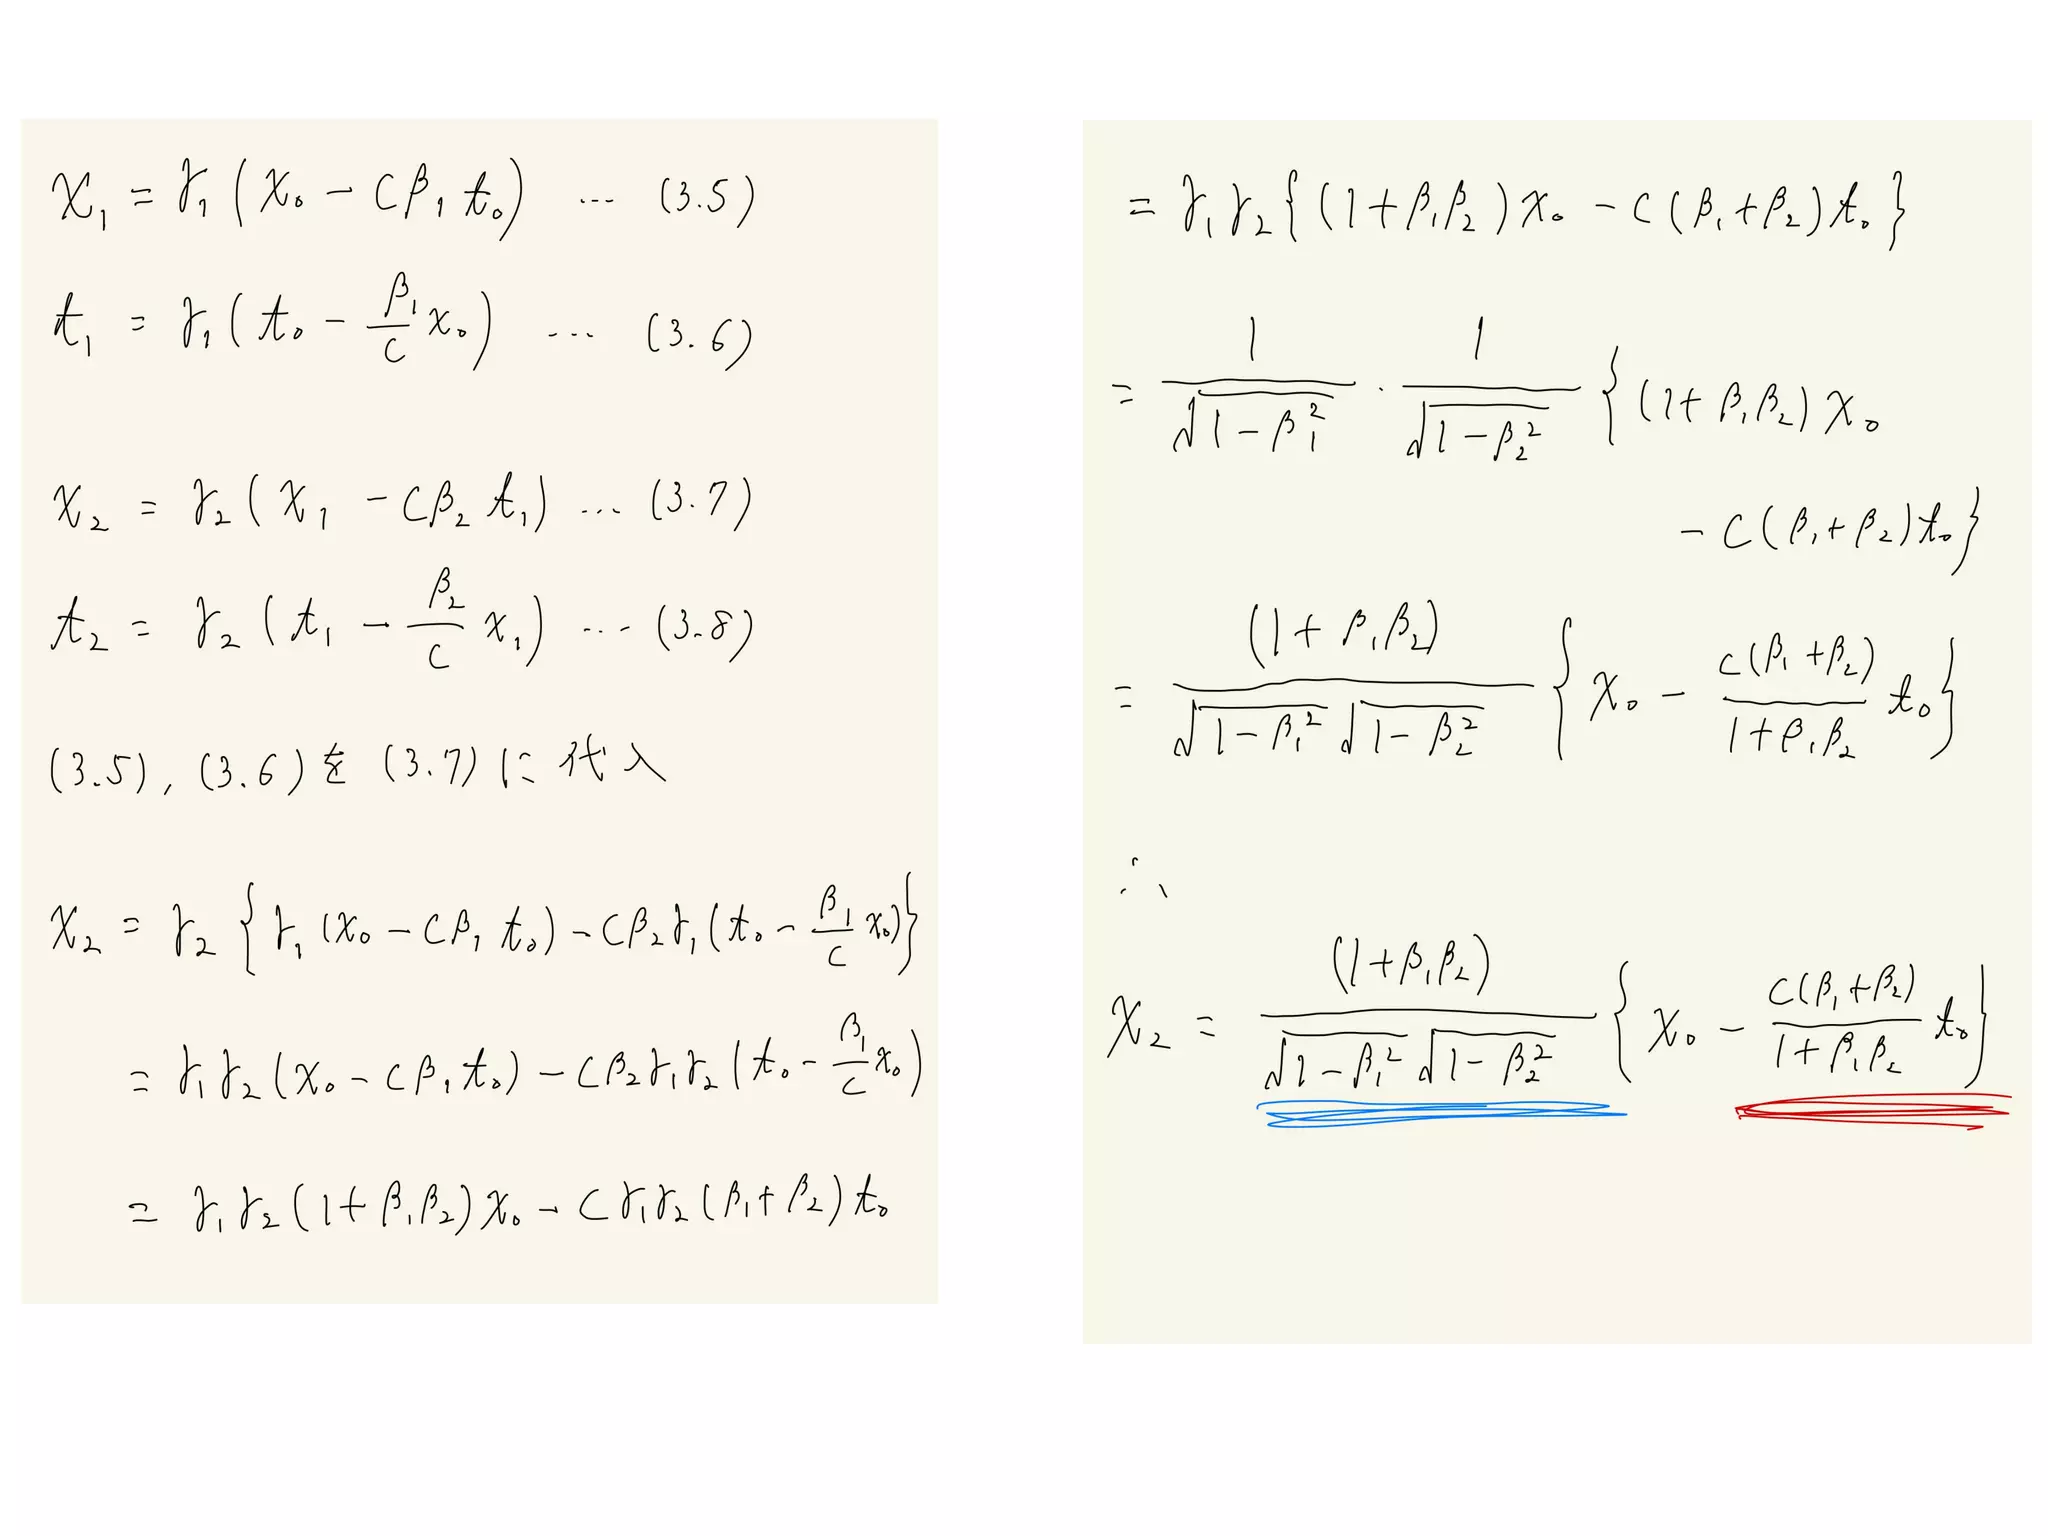 x₁ = γ₁(x₀ − cβ₁t₀) … (3.5)
t₁ = γ₁(t₀ − (β₁/c)x₀) … (3.6)
x₂ = γ₂(x₁ − cβ₂t₁) … (3.7)
t₂ = γ₂(t₁ − (β₂/c)x₁) … (3.8)
(3.5), (3.6)を(3.7)に代入
x₂ = γ₂{γ₁(x₀ − cβ₁t₀) − cβ₂γ₁(t₀ − (β₁/c)x₀)}
= γ₁γ₂(x₀ − cβ₁t₀) − cβ₂γ₁γ₂(t₀ − (β₁/c)x₀)
= γ₁γ₂(1+β₁β₂)x₀ − cγ₁γ₂(β₁+β₂)t₀
= γ₁γ₂{(1+β₁β₂)x₀ − c(β₁+β₂)t₀}
= 1/√(1−β₁²) · 1/√(1−β₂²) {(1+β₁β₂)x₀
− c(β₁+β₂)t₀}
= (1+β₁β₂)/(√(1−β₁²)√(1−β₂²)) {x₀ − c(β₁+β₂)/(1+β₁β₂) t₀}
∴
x₂ = (1+β₁β₂)/(√(1−β₁²)√(1−β₂²)) {x₀ − c(β₁+β₂)/(1+β₁β₂) t₀}